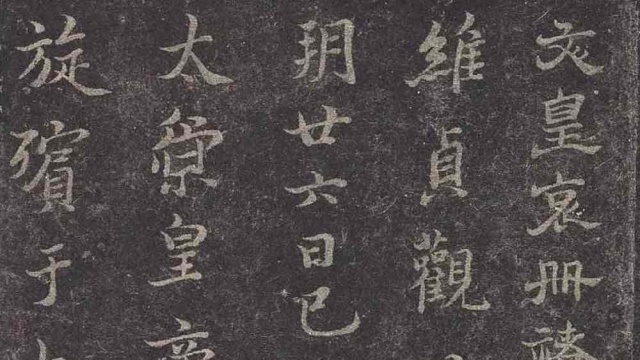 文皇哀册褚
維貞觀
朔廿六日己
太宗皇帝
旋殯于